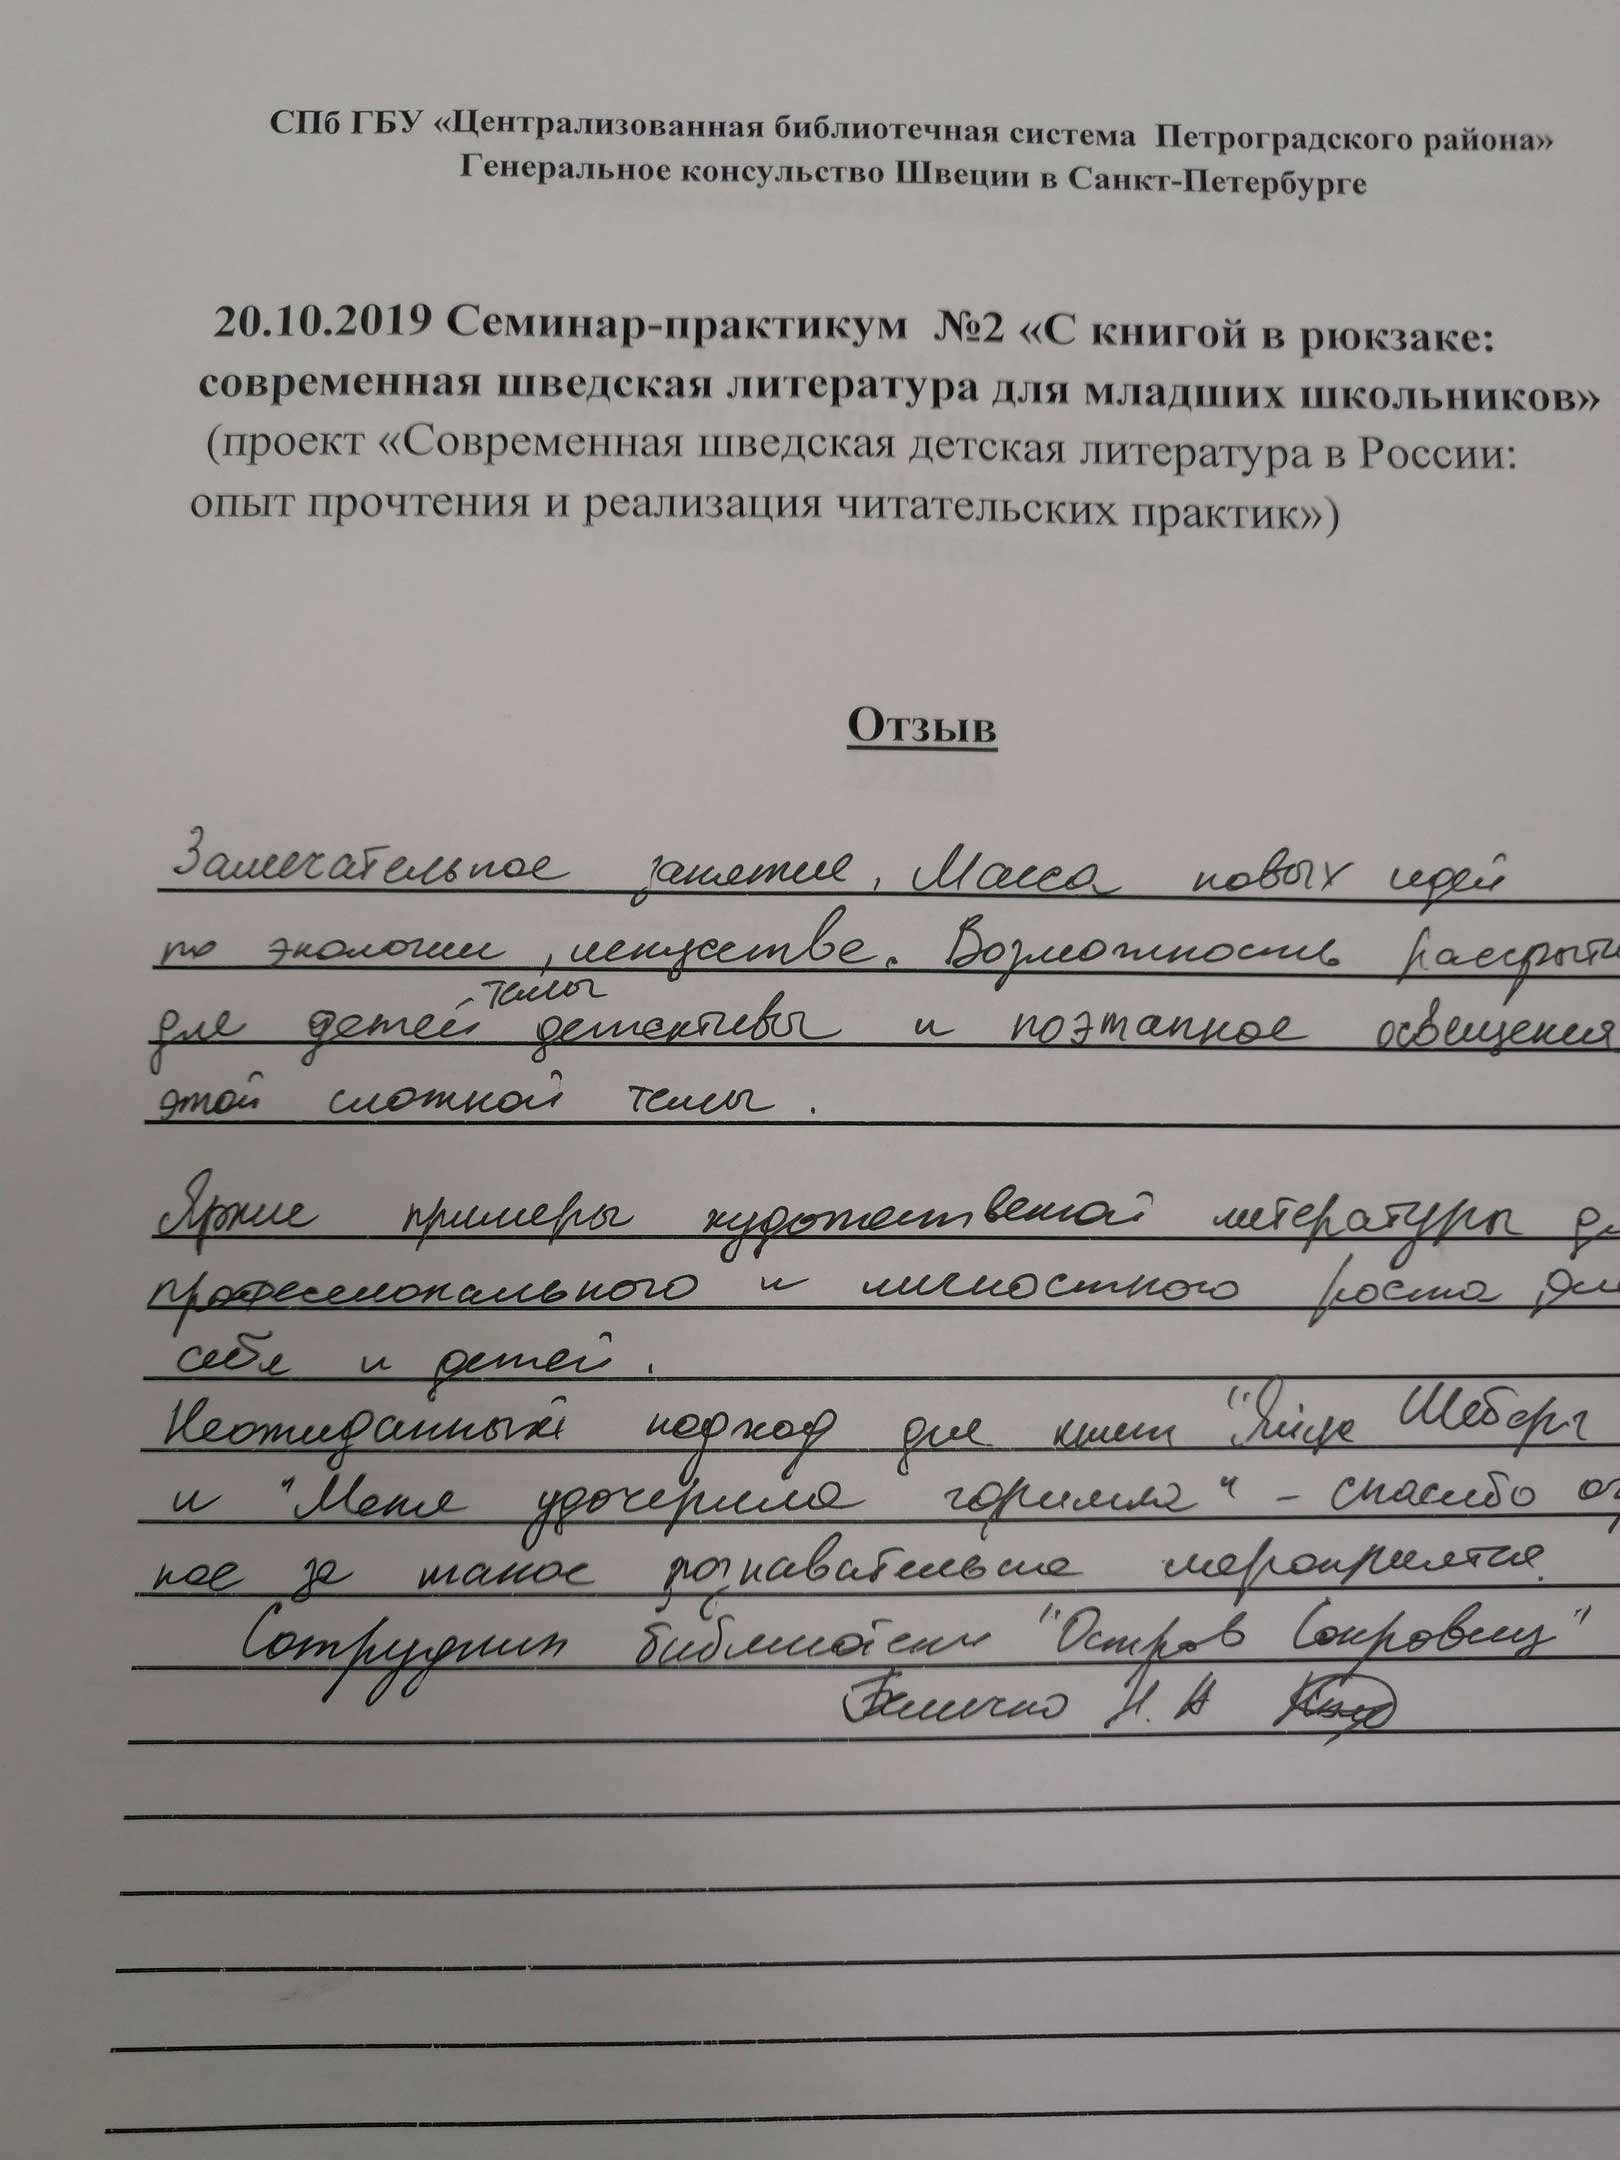 СПб ГБУ «Централизованная библиотечная система Петроградского района»
Генеральное консульство Швеции в Санкт-Петербурге
20.10.2019 Семинар-практикум №2 «С книгой в рюкзаке:
современная шведская литература для младших школьников»
(проект «Современная шведская детская литература в России:
опыт прочтения и реализация читательских практик»)
Отзыв
Замечательное занятие, Масса новых идей
по экологии, искусстве. Возможность
темы
для детей детективы и поэтапное освещения
этой сложной темы.
Яркие примеры художественной литературы
профессионального и личностного роста для
себя и детей.
Неожиданный подход для книг "Яйца Шеберг
и "Меня удочерила горилла" - спасибо
ное за такое познавательное мероприятие.
Сотрудник библиотеки "Остров Сокровищ"
Н. А